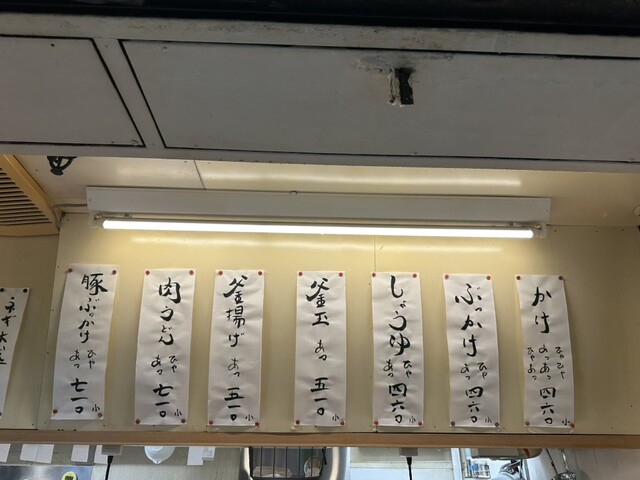 かけ ひやひや あつあつ ひやあつ 四六〇 小
ぶっかけ ひや あつ 四六〇 小
しょうゆ ひや あつ 四六〇 小
釜玉 あつ 五一〇 小
釜揚げ あつ 五一〇 小
肉うどん ひや あつ 七一〇 小
豚ぶっかけ ひや あつ 七一〇 小